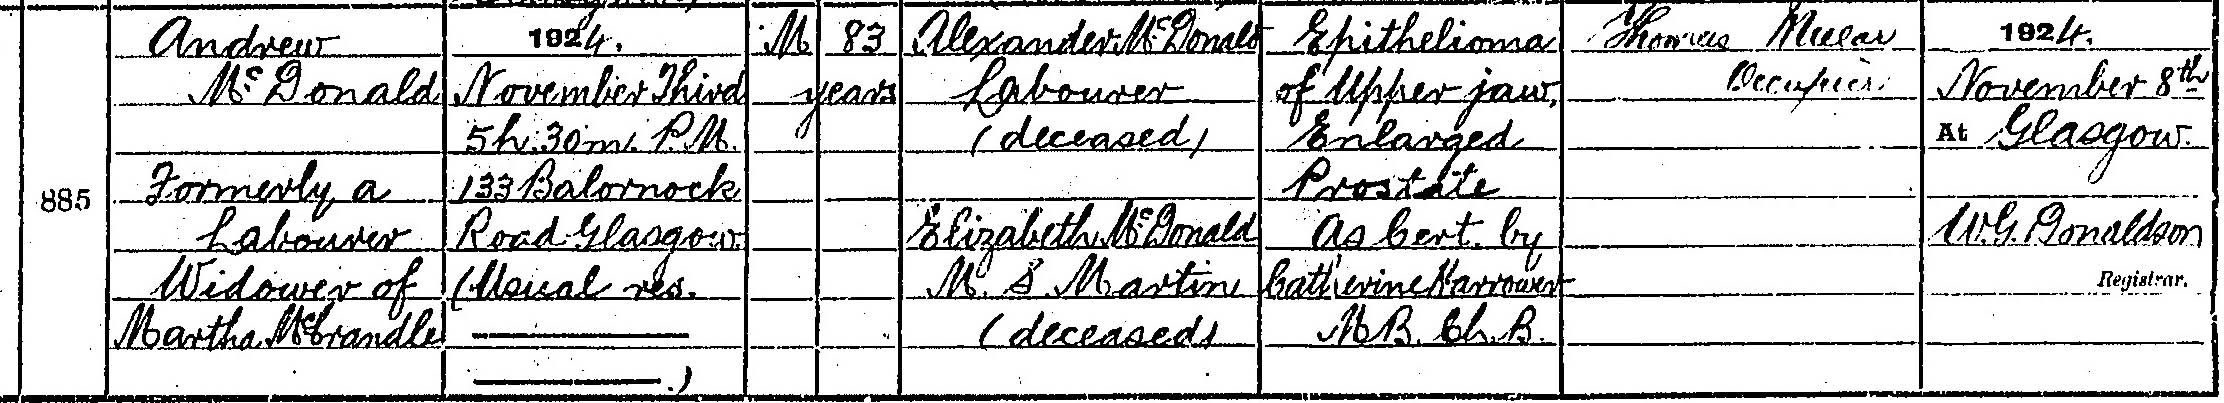 885
Andrew
McDonald
Formerly a
Labourer
Widower of
Martha McCrandle
1924.
November Third
5h. 30m. P.M.
133 Balornock
Road Glasgow
(Usual res.
.)
M 83
years
Alexander McDonald
Labourer
(deceased)
Elizabeth McDonald
M. S. Martin
(deceased)
Epithelioma
of Upper jaw.
Enlarged
Prostate
As Cert. by
Catherine Harrower
M.B. Ch. B.
Thomas
Occupier.
1924.
November 8th
At Glasgow.
W.G. Donaldson
Registrar.